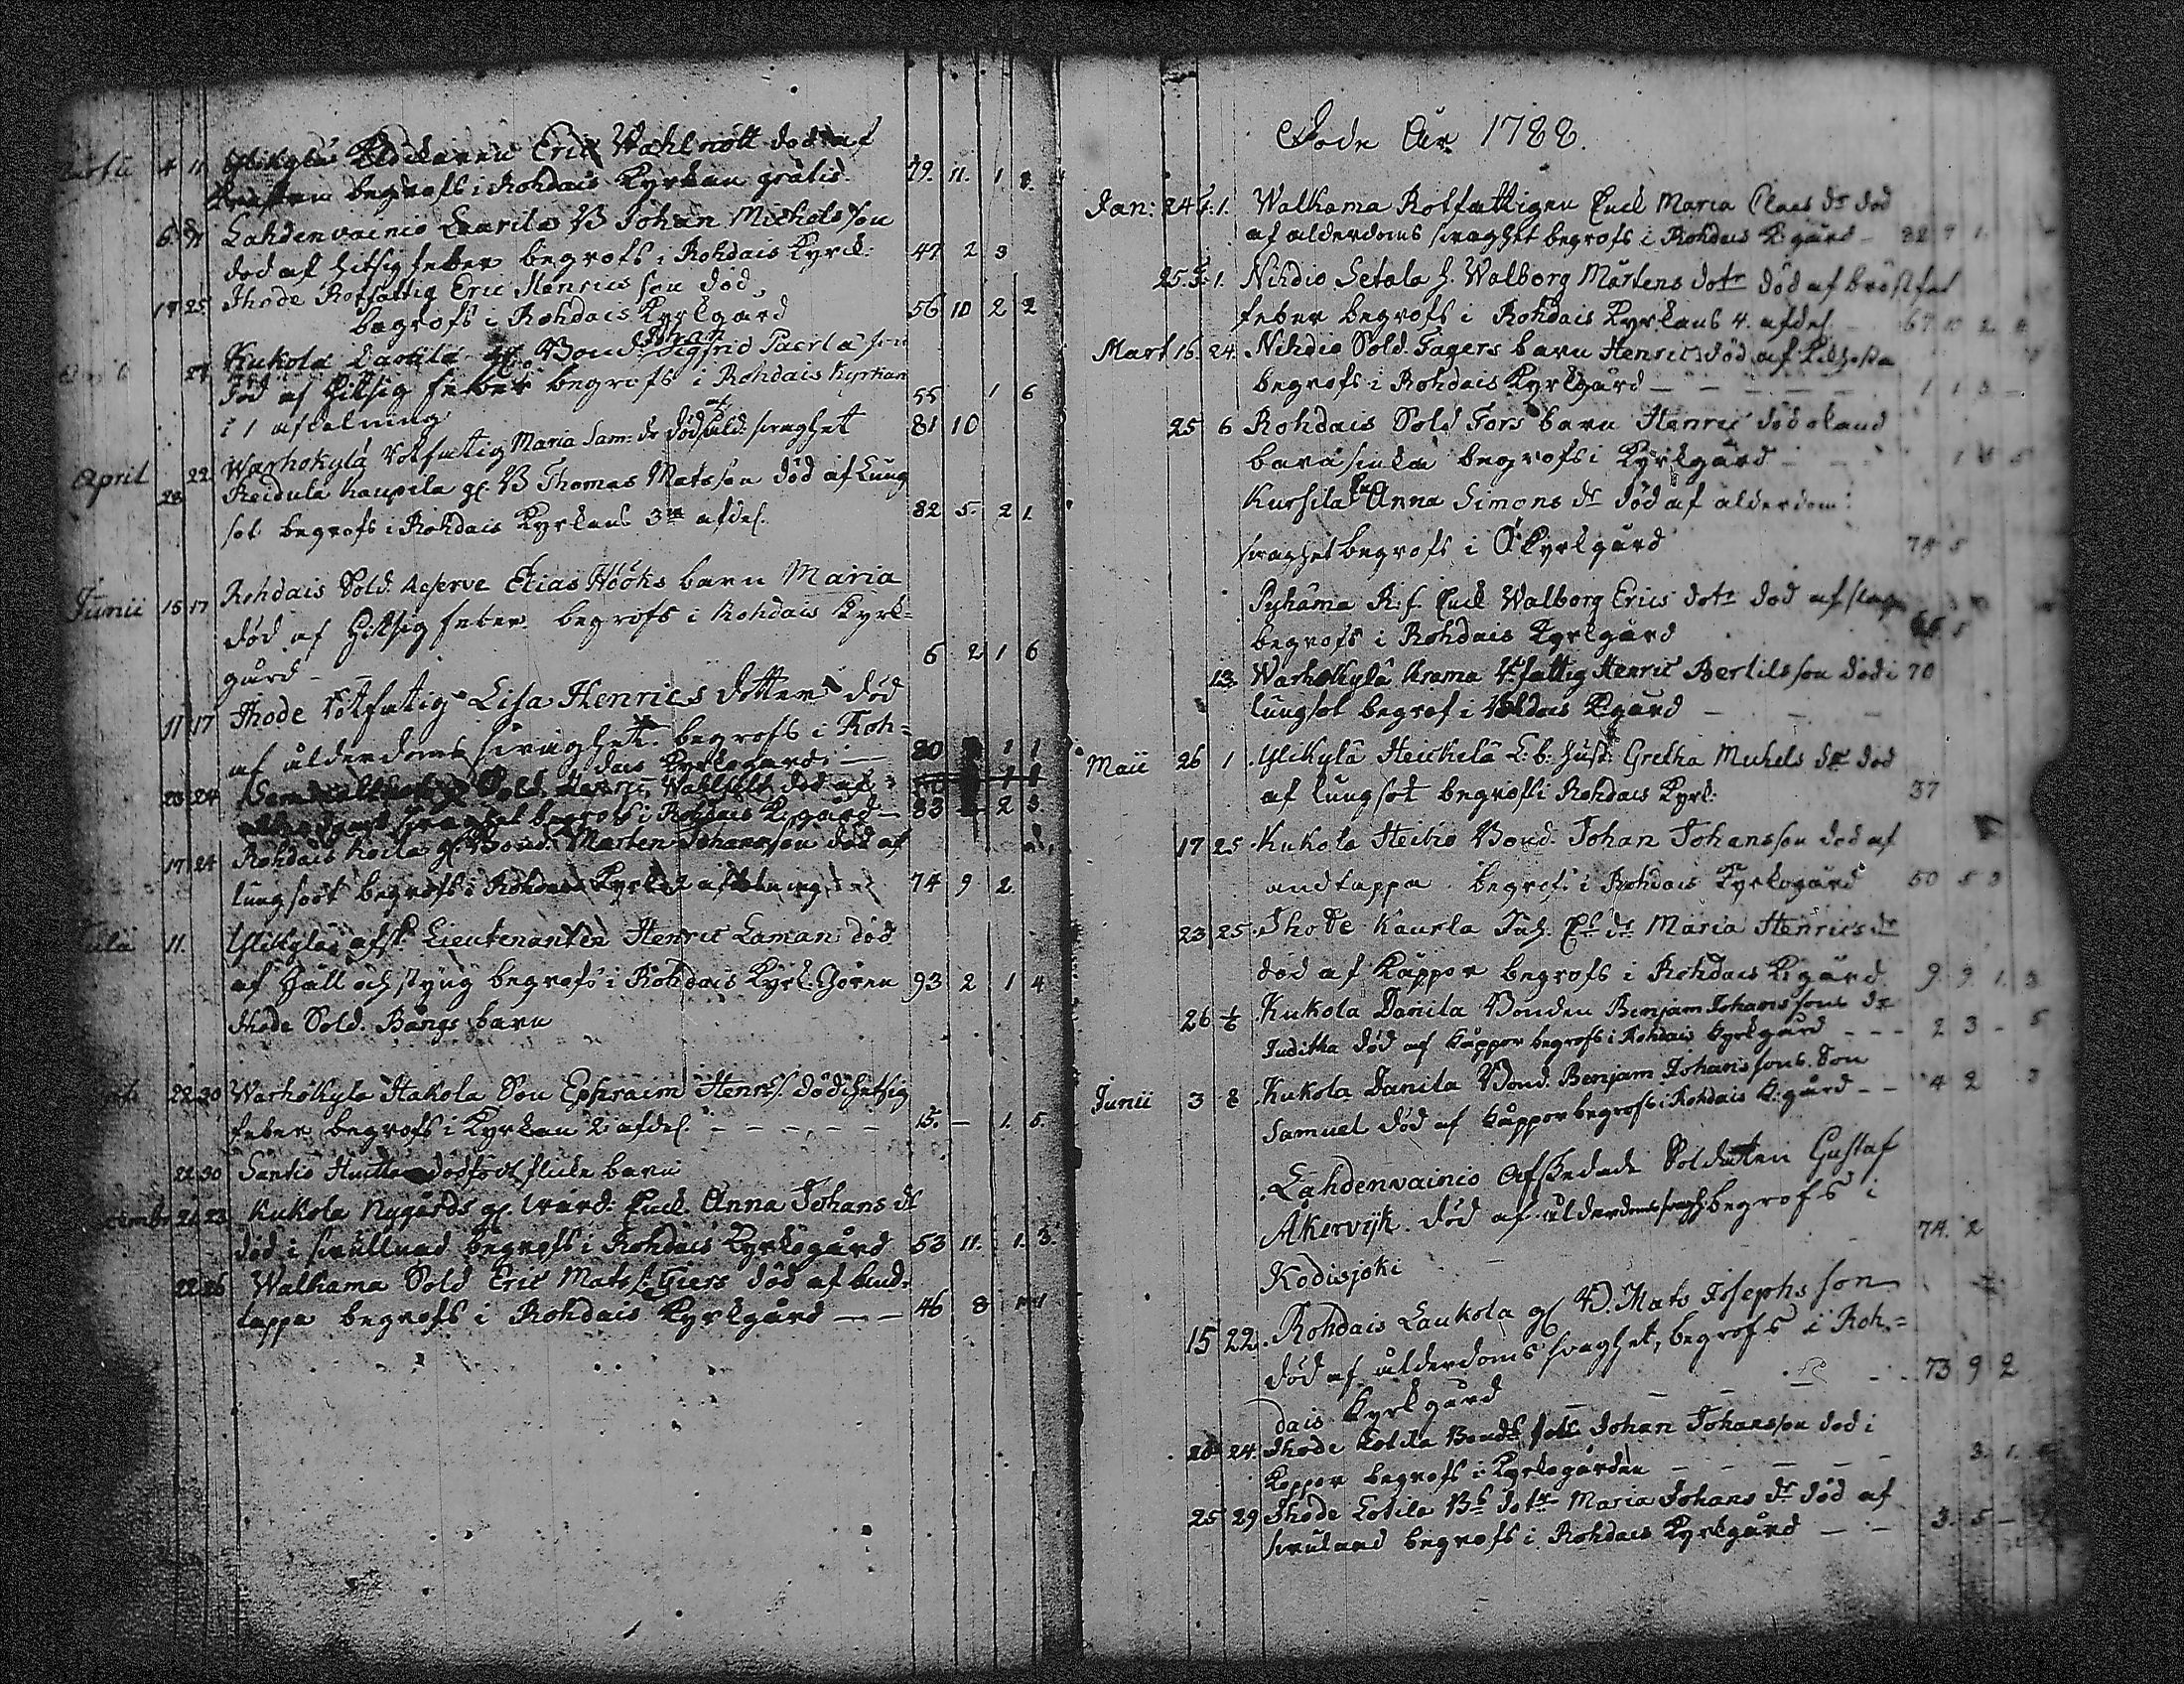 4 11 Ylikylä Eric Wahlrott död af
begrofs i Rohdais Kyrkan gratis. 79. 11. 1
6 Lahdenvainio Laurila B Johan Michelsson
död af hitsig feber begrofs i Rohdais Kyrck: 47 2 3
17 25 Ihode Rotfattig Eric Henricsson död,
begrofs i Rohdais Kyrkgård 56 10 2 2
Johan
27 Kukola gl. Bond. Sigfrid son
död af Hitsig feber begrofs i Rohdais Kyrkan
i 1 afdelning 55 1 6
April 22 Warhokylä rotfattig Maria Sam: dr död af åld. svaghet 81 10
28 Reidula Kaupila gl. B Thomas Matsson död af Lung
sot begrofs i Rohdais Kyrkans 3 afdel. 82 5. 2 1
Junii 15 17 Rohdais Sold. Reserve Elias Hööks barn Maria
död af Hitsig feber begrofs i Rohdais Kyrk=
gård - 6 2 1 6
11 17 Ihode rotfatig Lisa Henrics dotter död
af ålderdoms svaghet. begrofs i Roh=
dais Kyrkogård: 80 1 1
23 24 Sold. Wahlfelt död af
begrofs i Rohdais K. gård 83 2 3
17 24 Rohdais Koila gl. Bond. Mårten Johansson död af
lungsoot begrofs i Rohdais Kyrka 2 afdelning 74 9 2
11. Ylikylä afsk. Lieutenanten Henric Laman död
af Håll och styng begrofs i Rohdais Kyrk. Gören 93 2 1 4
Ihode Sold. Bångs barn
22 30 Warhokyla Hakola Son Ephraim Henrs. död i hetsig
feber begrofs i Kyrkan 2 afdel. - - - - 15. - 1. 5
22 30 Santio dödfödt flicke barn
21 23 Kukola Nygårds gl. Anna Johans dr
död i svullnad begrofs i Rohdais Kyrkogård 53 11. 1. 3.
22 26 Walhama Sold Eric Matss. Giers död af and=
tappa begrofs i Rohdais Kyrkgård — — 46 8
Döde År 1788.
Jan: 24 1. Walhama Rotfattigen Enck Maria Claes dr död
af alderdoms svaghet begrofs i Rohdais K gård - 82 9 1.
25. 1. Nihdio Setala h. Walborg Mårtens dotr död af bröst
feber begrofs i Rohdais Kyrkans 4. afdel. 67 10 2
Mart 16 24. Nihdio Sold. Fagers barn Henric död af Kikhosta
begrofs i Rohdais Kyrkgård — — — — 1 1 3 -
25 6 Rohdais Sold Fors barn Henric död
begrofs i Kyrkgård
Kursila Anna Simons dr död af alderdom:
svaghet begrofs i Kyrkgård 74 5
Pyhäma R. f. Enck Walborg Erics dotr död af slag
begrofs i Rohdais Kyrkgård 65 5
13 Warhokylä Krama fattig Henric Bertilsson död i 70
lungsot begrof i Rohdais K gård — — —
Maii 26 1 Ylikylä Heickelä L. b. hust: Gretha Michels dr död
af lungsot begrofs i Rohdais Kyrk: 37
17 25 Kukola Heickio Bond. Johan Johansson död af
andtappa. begrofs i Rohdais Kyrkogård 50 5 3
23 25 Ihode Kaurla dr Maria Henrics dr
död af Kåppor begrofs i Rohdais K. gård 9 9 1. 3
26 Kukola Danila Bonden Benjam Johanssons dr
Juditha död af Kåppor begrofs i Rohdais Kyrkgård - - - 2 3 - 5
Junii 3 8 Kukola Danila Bond. Benjam Johanssons. Son
Samuel död af Kåppor begrofs i Rohdais K. gård - - 4 2 3
Lahdenvainio Afskedade Soldaten Gustaf
Åkervijk. död af ålderdoms svagh. begrofs i
Kodisjoki 74. 2
15 22. Rohdais Laukola gl B. Mats Josephsson
död af ålderdoms svaghet, begrofs i Roh=
dais Kyrkgård 73 9 2
20 24. Ihode Kotila Bonds Johan Johansson död i
Koppor begrofs i Kyrkogården — — — — 3. 1.
25 29 Ihode Kotila Bs dotr Maria Johans dr död af
svulnad begrofs i Rohdais Kyrkgård — — 3. 5 -